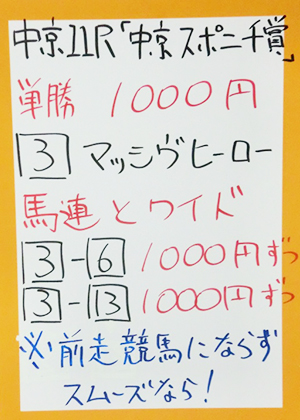 中京11R「中京スポニチ賞」
単勝 1000円
3 マッシヴヒーロー
馬連とワイド
3-6 1000円ずつ
3-13 1000円ずつ
※前走競馬にならず
スムーズなら!